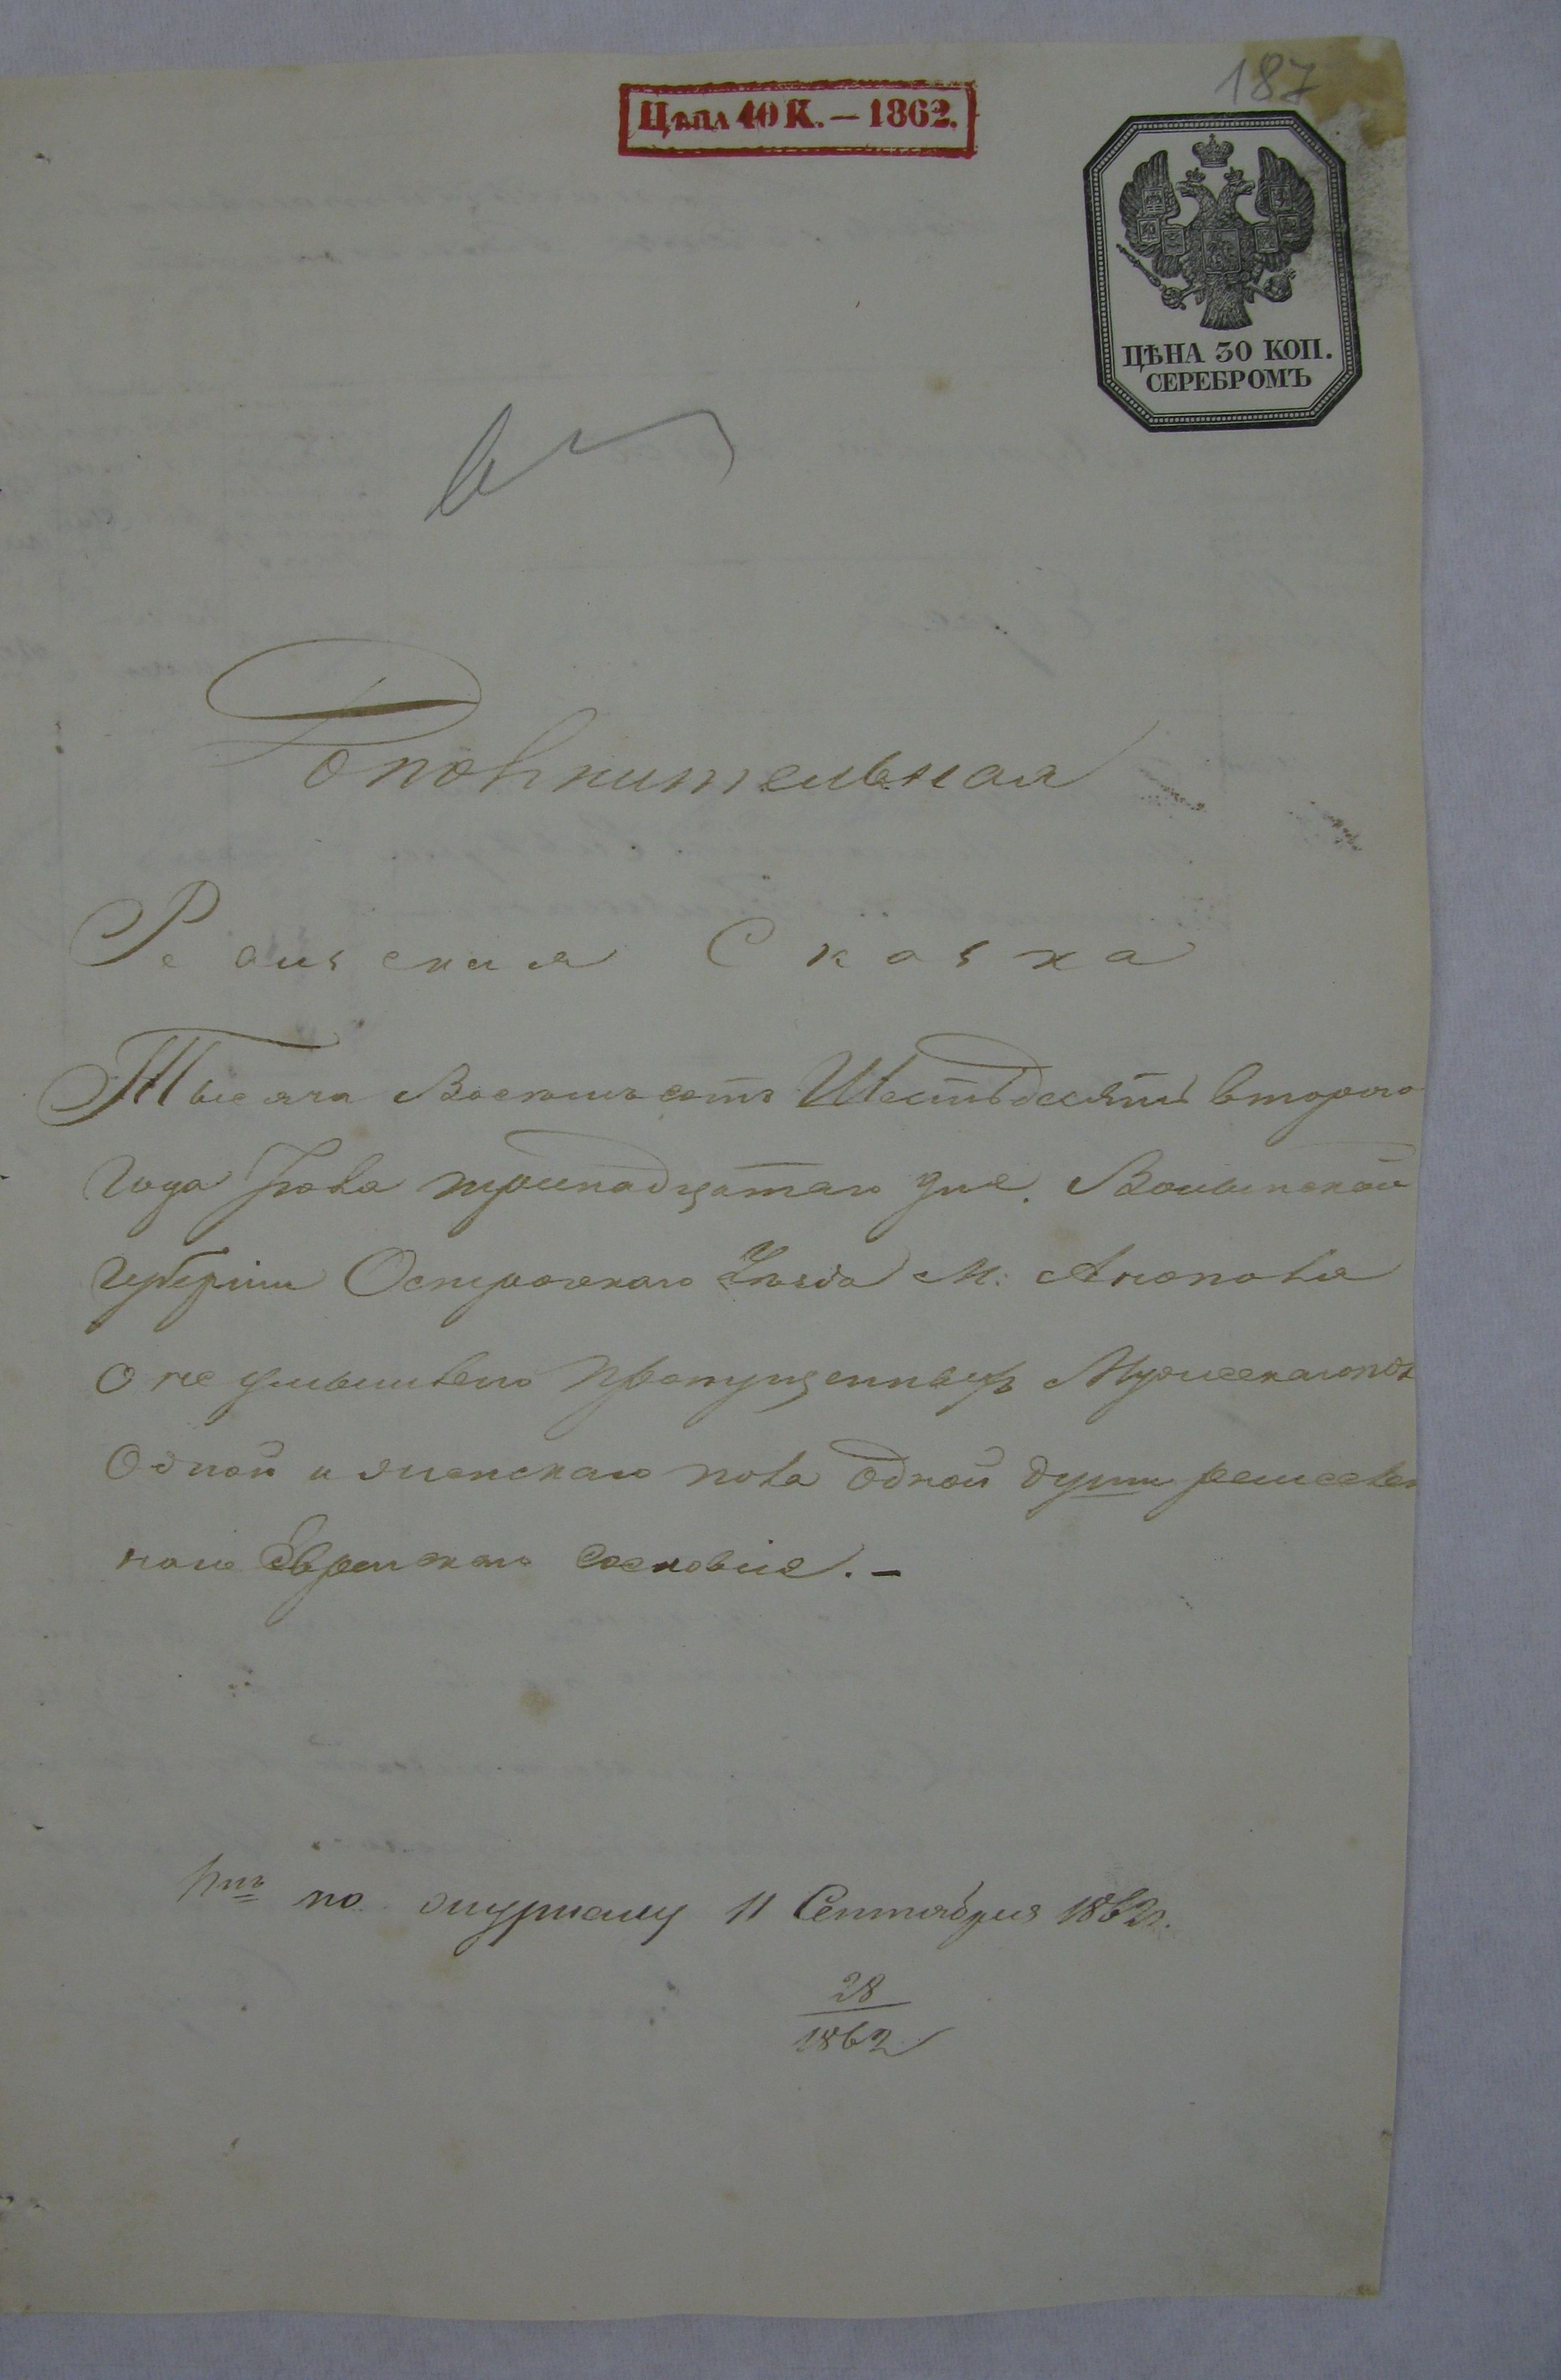 187
Цѣна 40 К. — 1862.
ЦѢНА 30 КОП.
СЕРЕБРОМЪ
Дополнительная
Ревизская Сказка
Тысяча Восемьсотъ Шестьдесятъ второго
года Іюля тринадцатаго дня. Волынской
Губерніи Острожскаго Уѣзда М: Аннополя
о пропущенныхъ Мужескаго пол
Одной и женскаго пола одной души
наго Еврейскаго Сословія. –
по журналу 11 Сентября 1862 г.
28
1862